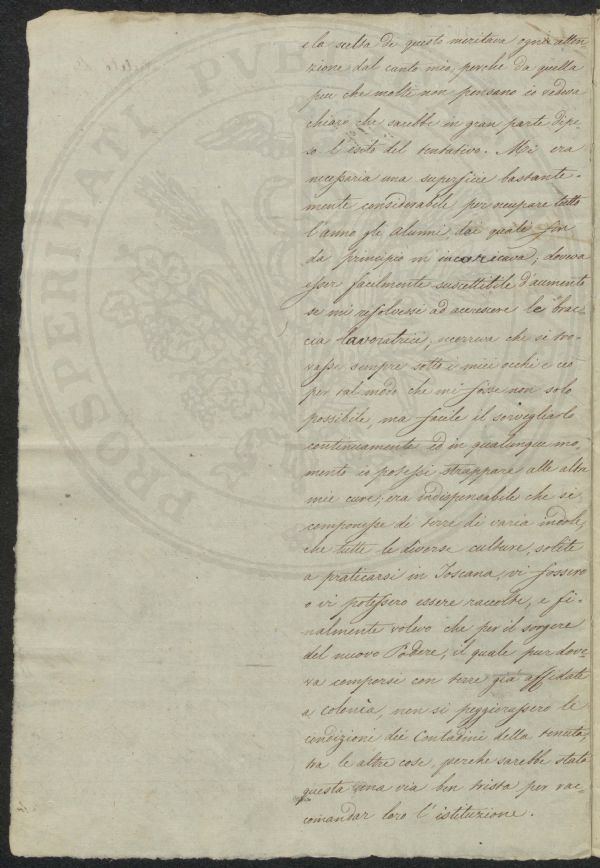 e la scelta di questo meritava ogni atten
zione dal canto mio, perchè da quella
più che molti non pensano io vedeva
chiaro che sarebbe in gran parte dipe
so l'esito del tentativo. Mi era
necessaria una superficie bastante-
mente considerabile per occupare tutto
l'anno gli alunni dei quali fin
da principio m'incaricava; doveva
esser facilmente suscettibile d'aumento
se mi resolvessi ad accrescere le brac-
cia lavoratrici, occorreva che si tro-
vasse sempre sotto i miei occhi e ciò
per tal modo che mi fosse non solo
possibile, ma facile il sorvegliarlo
continuamente ed in qualunque mo,
mento io potessi strappare alle altre
mie cure; era indispensabile che si
componesse di terre di varia indole,
che tutte le diverse culture, solite
a praticarsi in Toscana, vi fossero
o vi potessero essere raccolte, e fi-
nalmente volevo che per il sorgere
del nuovo Podere, il quale pur dove
va comporsi con terre già affidate
a colonìa, non si peggiorassero le
condizioni dei Contadini della tenuta,
tra le altre cose, perchè sarebbe stata
questa una via ben trista per rac-
comandar loro l'istituzione.
PROSPERITATI PVB